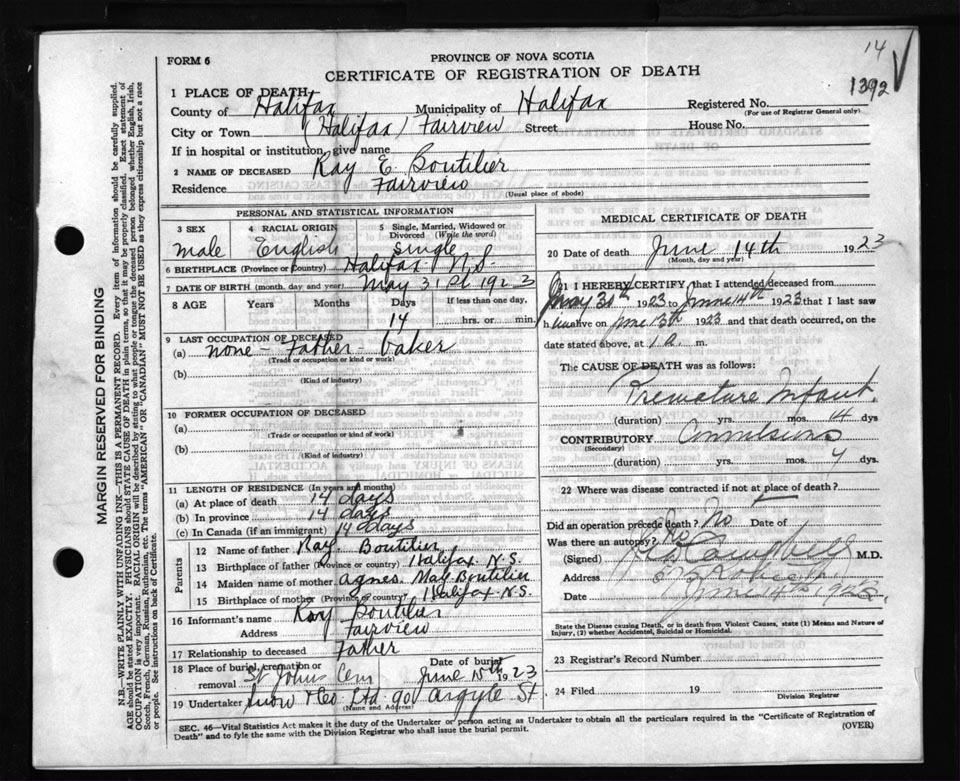 14
1392
FORM 6
PROVINCE OF NOVA SCOTIA
CERTIFICATE OF REGISTRATION OF DEATH
1 PLACE OF DEATH
County of Halifax Municipality of Halifax Registered No.
(For use of Registrar General only)
City or Town (Halifax) Fairview Street House No.
If in hospital or institution, give name
2 NAME OF DECEASED Ray E. Boutilier
Residence Fairview
(Usual place of abode)
PERSONAL AND STATISTICAL INFORMATION
3 SEX 4 RACIAL ORIGIN 5 Single, Married, Widowed or Divorced (Write the word)
male English single
6 BIRTHPLACE (Province or Country) Halifax N.S.
7 DATE OF BIRTH (month, day and year) May 31st 1923
8 AGE Years Months Days If less than one day,
14 hrs. or min.
9 LAST OCCUPATION OF DECEASED
(a) none - Father - baker
(Trade or occupation or kind of work)
(b)
(Kind of industry)
10 FORMER OCCUPATION OF DECEASED
(a)
(Trade or occupation or kind of work)
(b)
(Kind of industry)
11 LENGTH OF RESIDENCE (In years and months)
(a) At place of death 14 days
(b) In province 14 days
(c) In Canada (if an immigrant) 14 days
Parents
12 Name of father Ray Boutilier
13 Birthplace of father (Province or country) Halifax N.S.
14 Maiden name of mother Agnes May Boutilier
15 Birthplace of mother (Province or country) Halifax N.S.
16 Informant's name Ray Boutilier
Address Fairview
17 Relationship to deceased Father
18 Place of burial, cremation or removal St Johns Cem Date of burial June 15th 1923
19 Undertaker Snow & Co Ltd 90 Argyle St
(Name and Address)
MEDICAL CERTIFICATE OF DEATH
20 Date of death June 14th 1923
(Month, day and year)
21 I HEREBY CERTIFY that I attended deceased from
May 30th 1923 to June 14th 1923 that I last saw
him alive on June 13th 1923 and that death occurred, on the
date stated above, at 1 a. m.
The CAUSE OF DEATH was as follows:
Premature Infant.
(duration) yrs. mos. 14 dys
CONTRIBUTORY
(Secondary)
(duration) yrs. mos. dys
22 Where was disease contracted if not at place of death?
Did an operation precede death? No Date of
Was there an autopsy? No
(Signed) Campbell M.D.
Address
Date June
State the Disease causing Death, or in death from Violent Causes, state (1) Means and Nature of Injury, (2) whether Accidental, Suicidal or Homicidal.
23 Registrar's Record Number
24 Filed 19
Division Registrar
SEC. 46—Vital Statistics Act makes it the duty of the Undertaker or person acting as Undertaker to obtain all the particulars required in the "Certificate of Registration of
Death" and to fyle the same with the Division Registrar who shall issue the burial permit. (OVER)
MARGIN RESERVED FOR BINDING
N.B.—WRITE PLAINLY WITH UNFADING INK—THIS IS A PERMANENT RECORD. Every item of information should be carefully supplied.
AGE should be stated EXACTLY. PHYSICIANS should STATE CAUSE OF DEATH in plain terms, so that it may be properly classified. Exact statement of
OCCUPATION is very important. RACIAL ORIGIN will be described by stating to what people or tongue the deceased person belonged whether English, Irish,
Scotch, French, German, Russian, Ruthenian, etc. The terms "AMERICAN" OR "CANADIAN" MUST NOT BE USED as they express citizenship but not a race
or people. See instructions on back of Certificate.